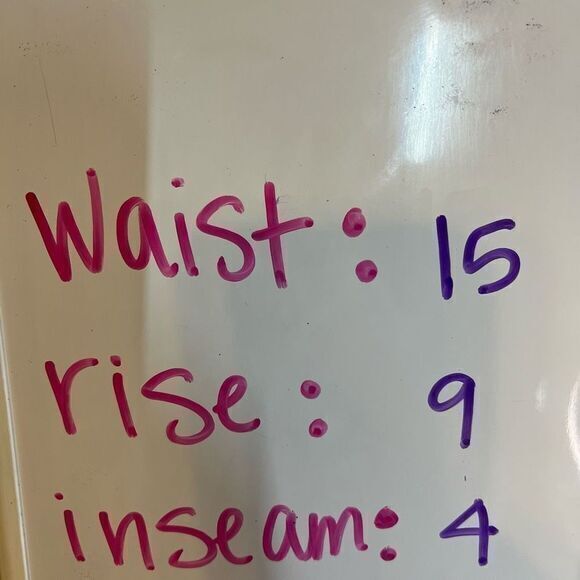 Waist: 15
rise: 9
inseam: 4